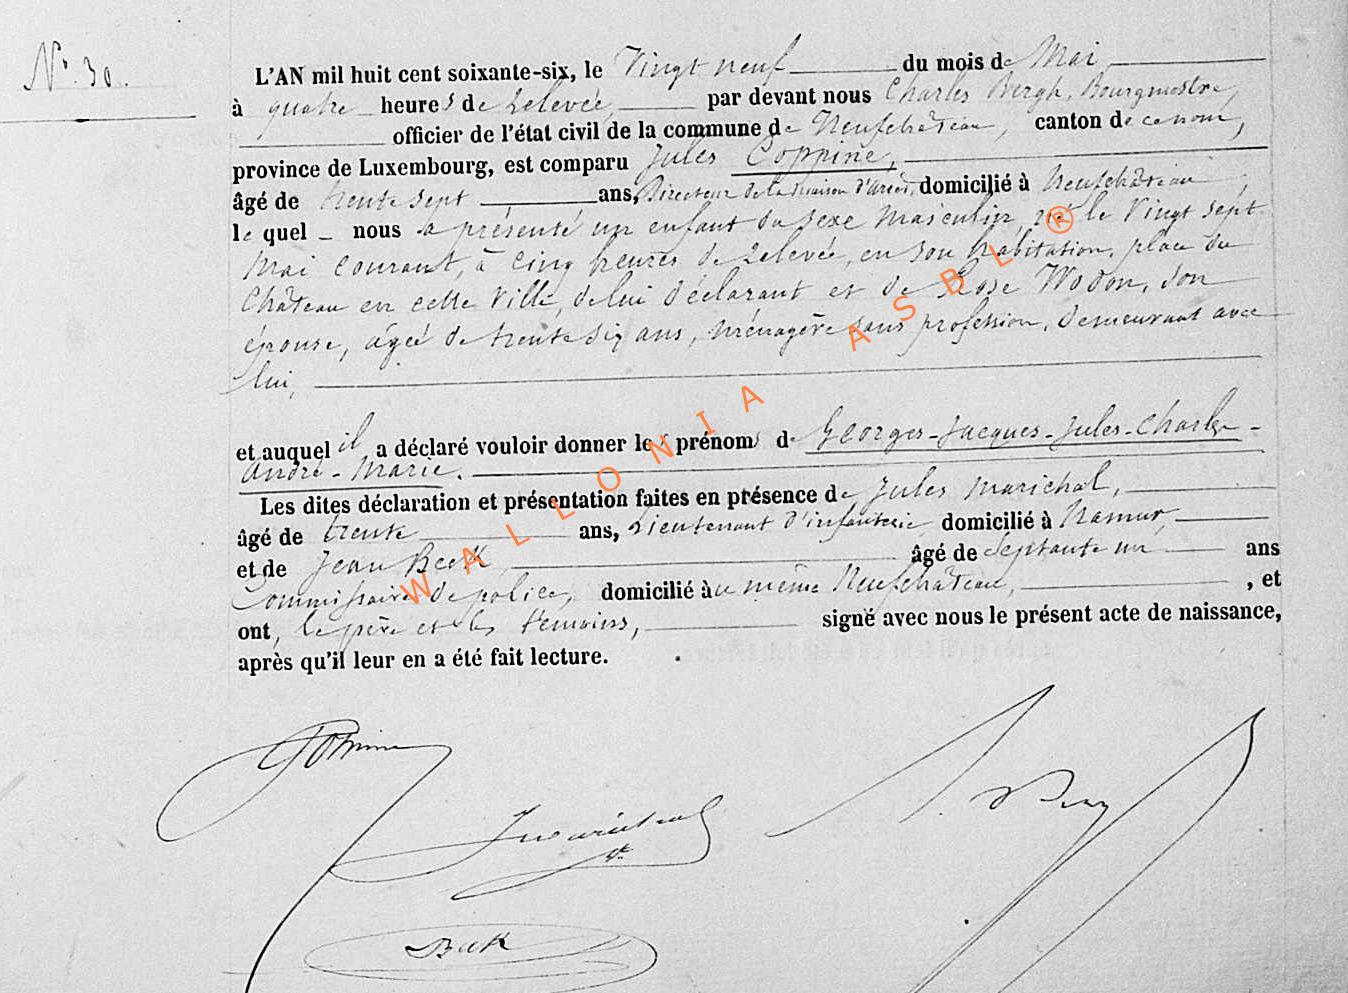 N° 30.
L'AN mil huit cent soixante-six, le Vingt neuf du mois de Mai
à quatre heures de relevée, par devant nous Charles Bergh, Bourgmestre,
officier de l'état civil de la commune de Neufchâteau, canton de ce nom,
province de Luxembourg, est comparu Jules Coppine,
âgé de trente sept ans, Directeur de la maison d'arrêt, domicilié à Neufchâteau,
le quel nous a présenté un enfant du sexe Masculin, né le Vingt sept
Mai courant, à cinq heures de relevée, en son habitation, place du
Château en cette Ville, de lui déclarant et de Rose Wodon, son
épouse, âgée de trente six ans, ménagère sans profession, demeurant avec
lui,
et auquel il a déclaré vouloir donner les prénoms de Georges-Jacques-Jules-Charles-
André-Marie.
Les dites déclaration et présentation faites en présence de Jules Marichal,
âgé de trente ans, Lieutenant d'infanterie, domicilié à Namur,
et de Jean Beck, âgé de septante un ans
Commissaire de police, domicilié au même Neufchâteau, , et
ont, le père et les témoins, signé avec nous le présent acte de naissance,
après qu'il leur en a été fait lecture.
WALLONIA ASBL ®
JMarichal
Beck